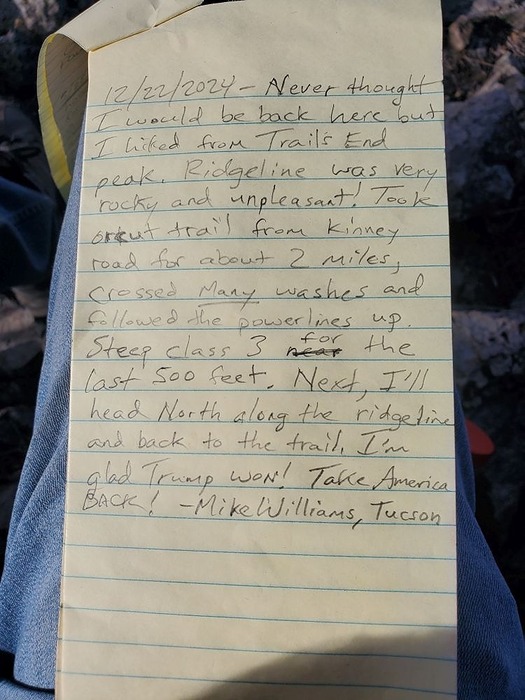 12/22/2024 - Never thought
I would be back here but
I hiked from Trail's End
peak. Ridgeline was very
rocky and unpleasant! Took
trail from Kinney
road for about 2 miles,
crossed Many washes and
followed the powerlines up.
Steep class 3 for the
last 500 feet. Next, I'll
head North along the ridgeline
and back to the trail. I'm
glad Trump won! Take America
BACK! -Mike Williams, Tucson